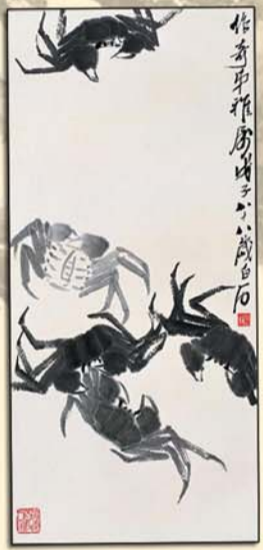 作奇弟雅属戊子八十八歲白石